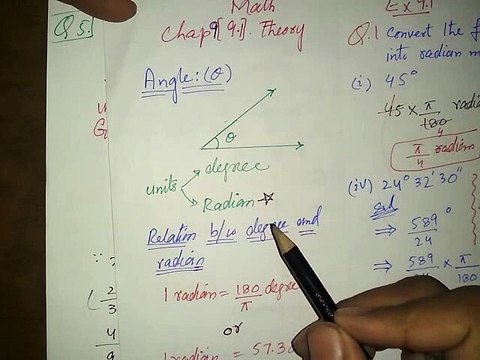 Q5.
Math
Chap[9.]. Theory
Angle:(θ)
θ
units
degree
Radian
Relation b/w degree and
radian
1 radian = 180/π degree
or
1 radian = 57.3
Ex 9.1
Q.1 Convert the
into radian
(i) 45°
45 × π/180
4
π/4 radian
(iv) 24° 32' 30"
Sol
⇒ 589°/24
⇒ 589/24 × π/180
2/3
4/9